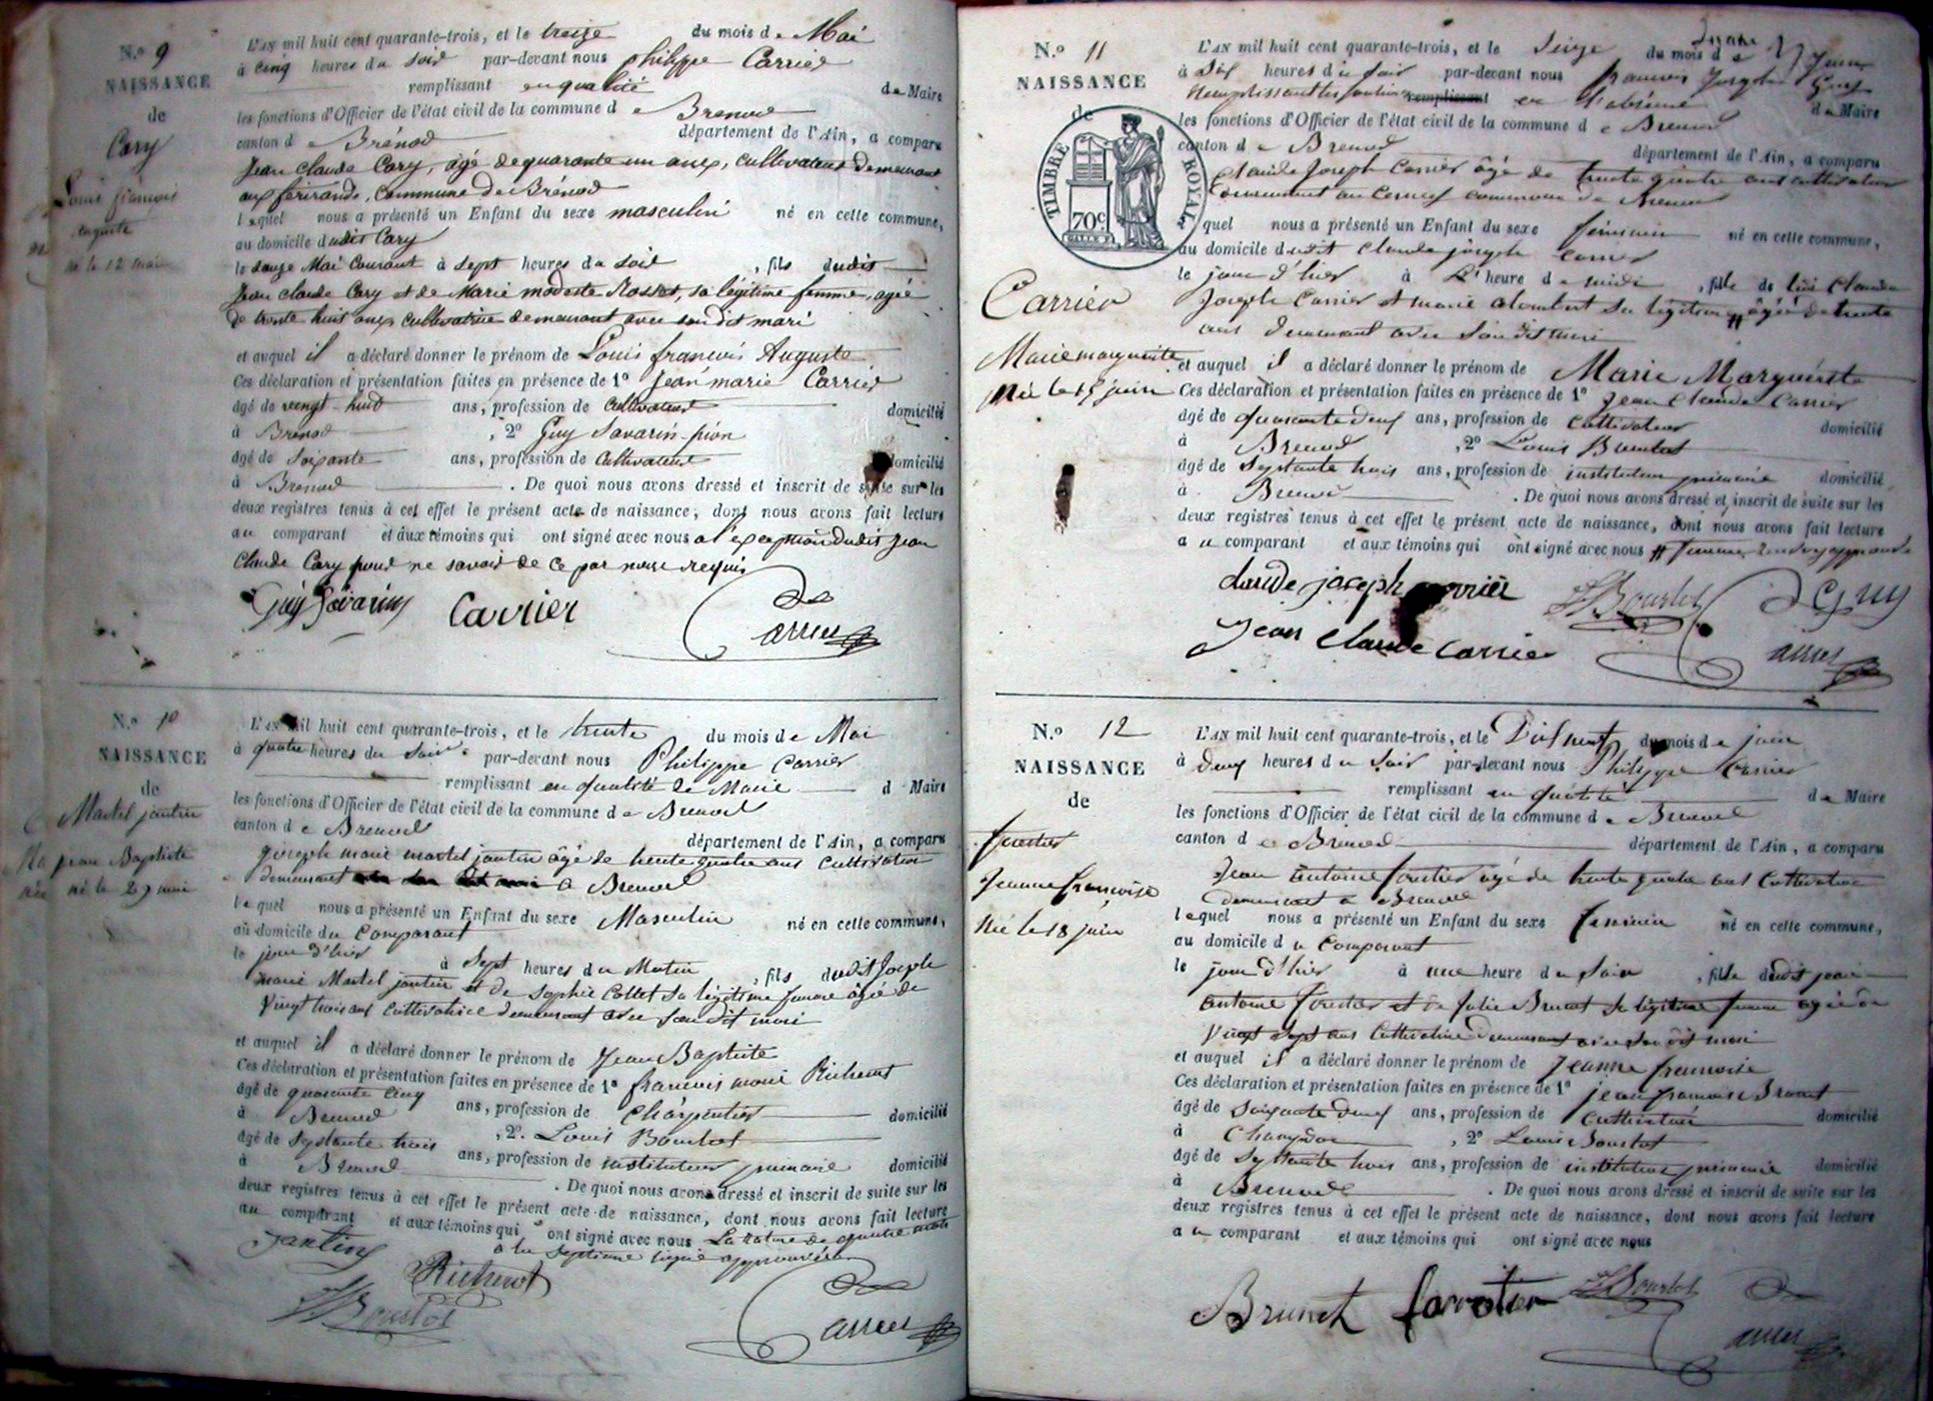 N.º 9
NAISSANCE
de
Cary
Louis françois
auguste
né le 12 mai
L'AN mil huit cent quarante-trois, et le treize du mois de Mai
à cinq heures du soir par-devant nous philippe Carrier
remplissant en qualité de Maire
les fonctions d'Officier de l'état civil de la commune d e Brenod
canton d e Brénod département de l'Ain, a comparu
Jean Claude Cary, âgé de quarante un ans, cultivateur demeurant
aux ferirands, Commune de Brénod
lequel nous a présenté un Enfant du sexe masculin né en cette commune,
au domicile dudit Cary
le douze Mai Courant à Sept heures du soir, fils dudit
Jean Claude Cary et de Marie modeste Rosset, sa légitime femme, agée
de trente huit ans cultivatrice demeurant avec son dit mari
et auquel il a déclaré donner le prénom de Louis françois Auguste
Ces déclaration et présentation faites en présence de 1º Jean marie Carrier
âgé de vingt-huit ans, profession de Cultivateur domicilié
à Brénod, 2º Guy Savarin-pion
âgé de soixante ans, profession de Cultivateur domicilié
à Brenod. De quoi nous avons dressé et inscrit de suite sur les
deux registres tenus à cet effet le présent acte de naissance, dont nous avons fait lecture
au comparant et aux témoins qui ont signé avec nous a l'exception dudit Jean
Claude Cary pour ne savoir de ce par nous requis
Guy Savarin Carrier Carrier
N.º 10
NAISSANCE
de
Martel jantin
jean Baptiste
né le 29 mai
L'AN mil huit cent quarante-trois, et le trente du mois de Mai
à quatre heures du soir par-devant nous Philippe Carrier
remplissant en qualité de Maire d Maire
les fonctions d'Officier de l'état civil de la commune d e Brenod
canton d e Brenod département de l'Ain, a comparu
joseph marie martel jantin âgé de trente quatre ans Cultivateur
demeurant a Brenod
lequel nous a présenté un Enfant du sexe Masculin né en cette commune,
au domicile du Comparant
le jour d'hier à Sept heures du Matin, fils dudit Joseph
marie Martel jantin et de Sophie Collet sa légitime femme âgée de
Vingt trois ans Cultivatrice demeurant avec son dit mari
et auquel il a déclaré donner le prénom de Jean Baptiste
Ces déclaration et présentation faites en présence de 1º francois marie Richerot
âgé de quarante cinq ans, profession de Charpentier domicilié
à Brenod, 2º Louis Bourlot
âgé de Septante trois ans, profession de instituteur primaire domicilié
à Brenod. De quoi nous avons dressé et inscrit de suite sur les
deux registres tenus à cet effet le présent acte de naissance, dont nous avons fait lecture
au comparant et aux témoins qui ont signé avec nous La rature de quatre mots
a la Septieme ligne approuvée
Jantin
Richerot
Bourlot Carrier
N.º 11
NAISSANCE
de
TIMBRE ROYAL
70c
Carrier
Marie marguerite
Née le 15 juin
L'AN mil huit cent quarante-trois, et le Seize du mois d e Juin
à Six heures du soir par-devant nous francois Joseph Guy
Remplissant les fonctions remplissant en l'absence de Maire
les fonctions d'Officier de l'état civil de la commune d e Brenod
canton d e Brenod département de l'Ain, a comparu
Claude Joseph Carrier âgé de trente quatre ans cultivateur
demeurant au commune de Brenod
quel nous a présenté un Enfant du sexe féminin né en cette commune,
au domicile dudit Claude joseph Carrier
le jour d'hier à L'heure de midi, fille de lui Claude
Joseph Carrier et marie sa légitime # âgée de trente
ans demeurant avec Son dit mari
et auquel il a déclaré donner le prénom de Marie Marguerite
Ces déclaration et présentation faites en présence de 1º Jean Claude Carrier
âgé de quarante deux ans, profession de Cultivateur domicilié
à Brenod, 2º Louis Bourlot
âgé de Septante trois ans, profession de instituteur primaire domicilié
à Brenod. De quoi nous avons dressé et inscrit de suite sur les
deux registres tenus à cet effet le présent acte de naissance, dont nous avons fait lecture
au comparant et aux témoins qui ont signé avec nous # femme Renvoy approuvé
claude joseph carrier Bourlot Guy
Jean Claude Carrier Carrier
N.º 12
NAISSANCE
de
forestier
Jeanne françoise
Née le 18 juin
L'AN mil huit cent quarante-trois, et le Dix neuf du mois de juin
à deux heures du soir par-devant nous Philippe Carrier
remplissant en qualité de Maire
les fonctions d'Officier de l'état civil de la commune d e Brenod
canton d e Brenod département de l'Ain, a comparu
Jean antoine forestier âgé de trente quatre ans Cultivateur
demeurant a Brenod
lequel nous a présenté un Enfant du sexe féminin né en cette commune,
au domicile du Comparant
le jour d'hier à une heure du Soir, fille dudit jean
antoine forestier et de Julie Brunet Sa légitime femme agée de
Vingt Sept ans Cultivatrice demeurant avec Son dit mari
et auquel il a déclaré donner le prénom de Jeanne francoise
Ces déclaration et présentation faites en présence de 1º jean francois Brunet
âgé de Soixante deux ans, profession de Cultivateur domicilié
à Champdor, 2º Louis Bourlot
âgé de Septante trois ans, profession de instituteur primaire domicilié
à Brenod. De quoi nous avons dressé et inscrit de suite sur les
deux registres tenus à cet effet le présent acte de naissance, dont nous avons fait lecture
au comparant et aux témoins qui ont signé avec nous
Brunet forestier Bourlot
Carrier